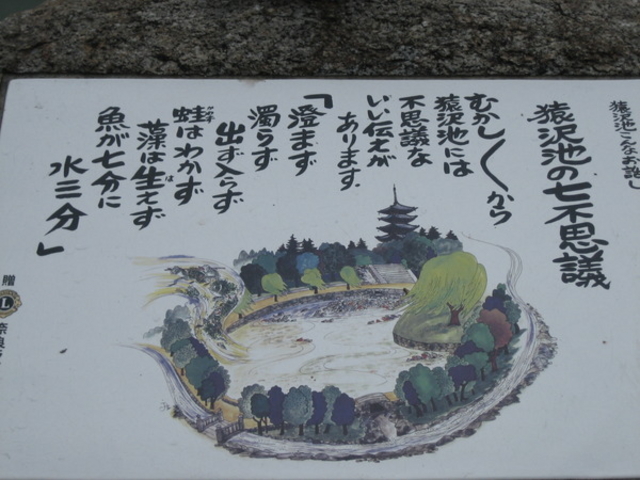 猿沢池こんなお話し
猿沢池の七不思議
むかし〱から
猿沢池には
不思議な
いい伝えが
あります。
「澄まず
濁らず
出ず入らず
蛙はわかず
かえる
藻は生えず
は
魚が七分に
水三分」
贈
L
奈良